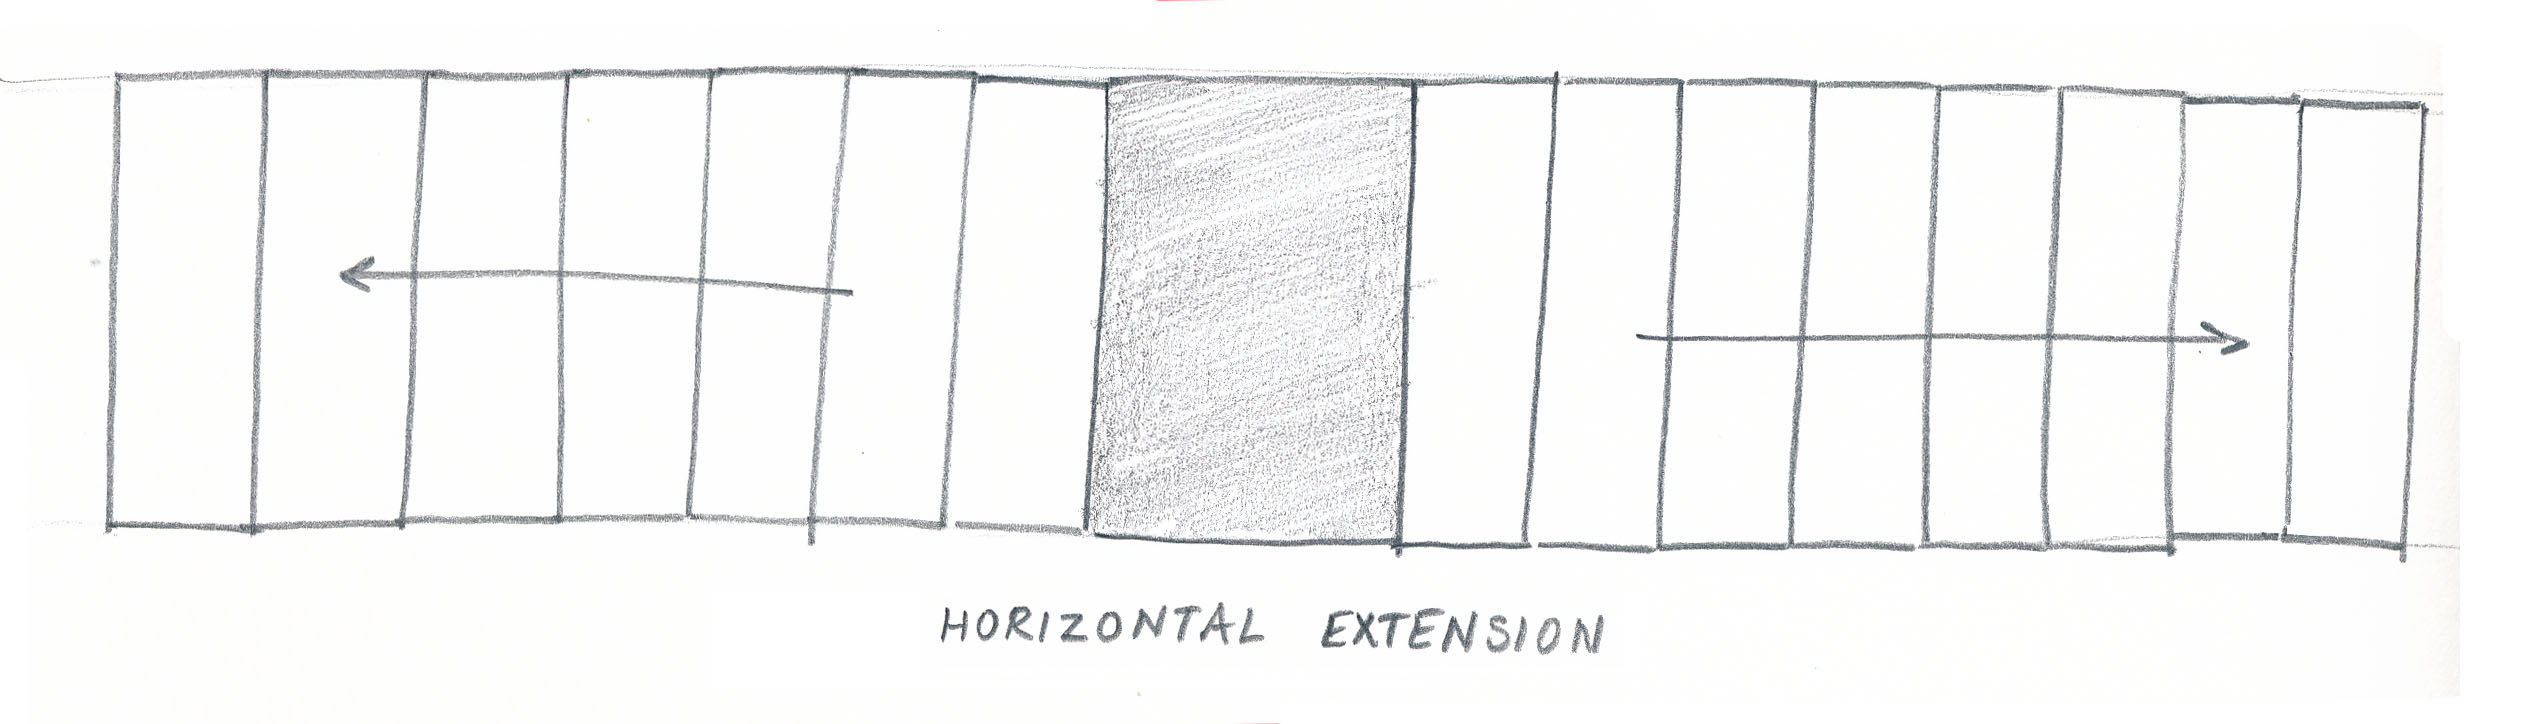 HORIZONTAL EXTENSION